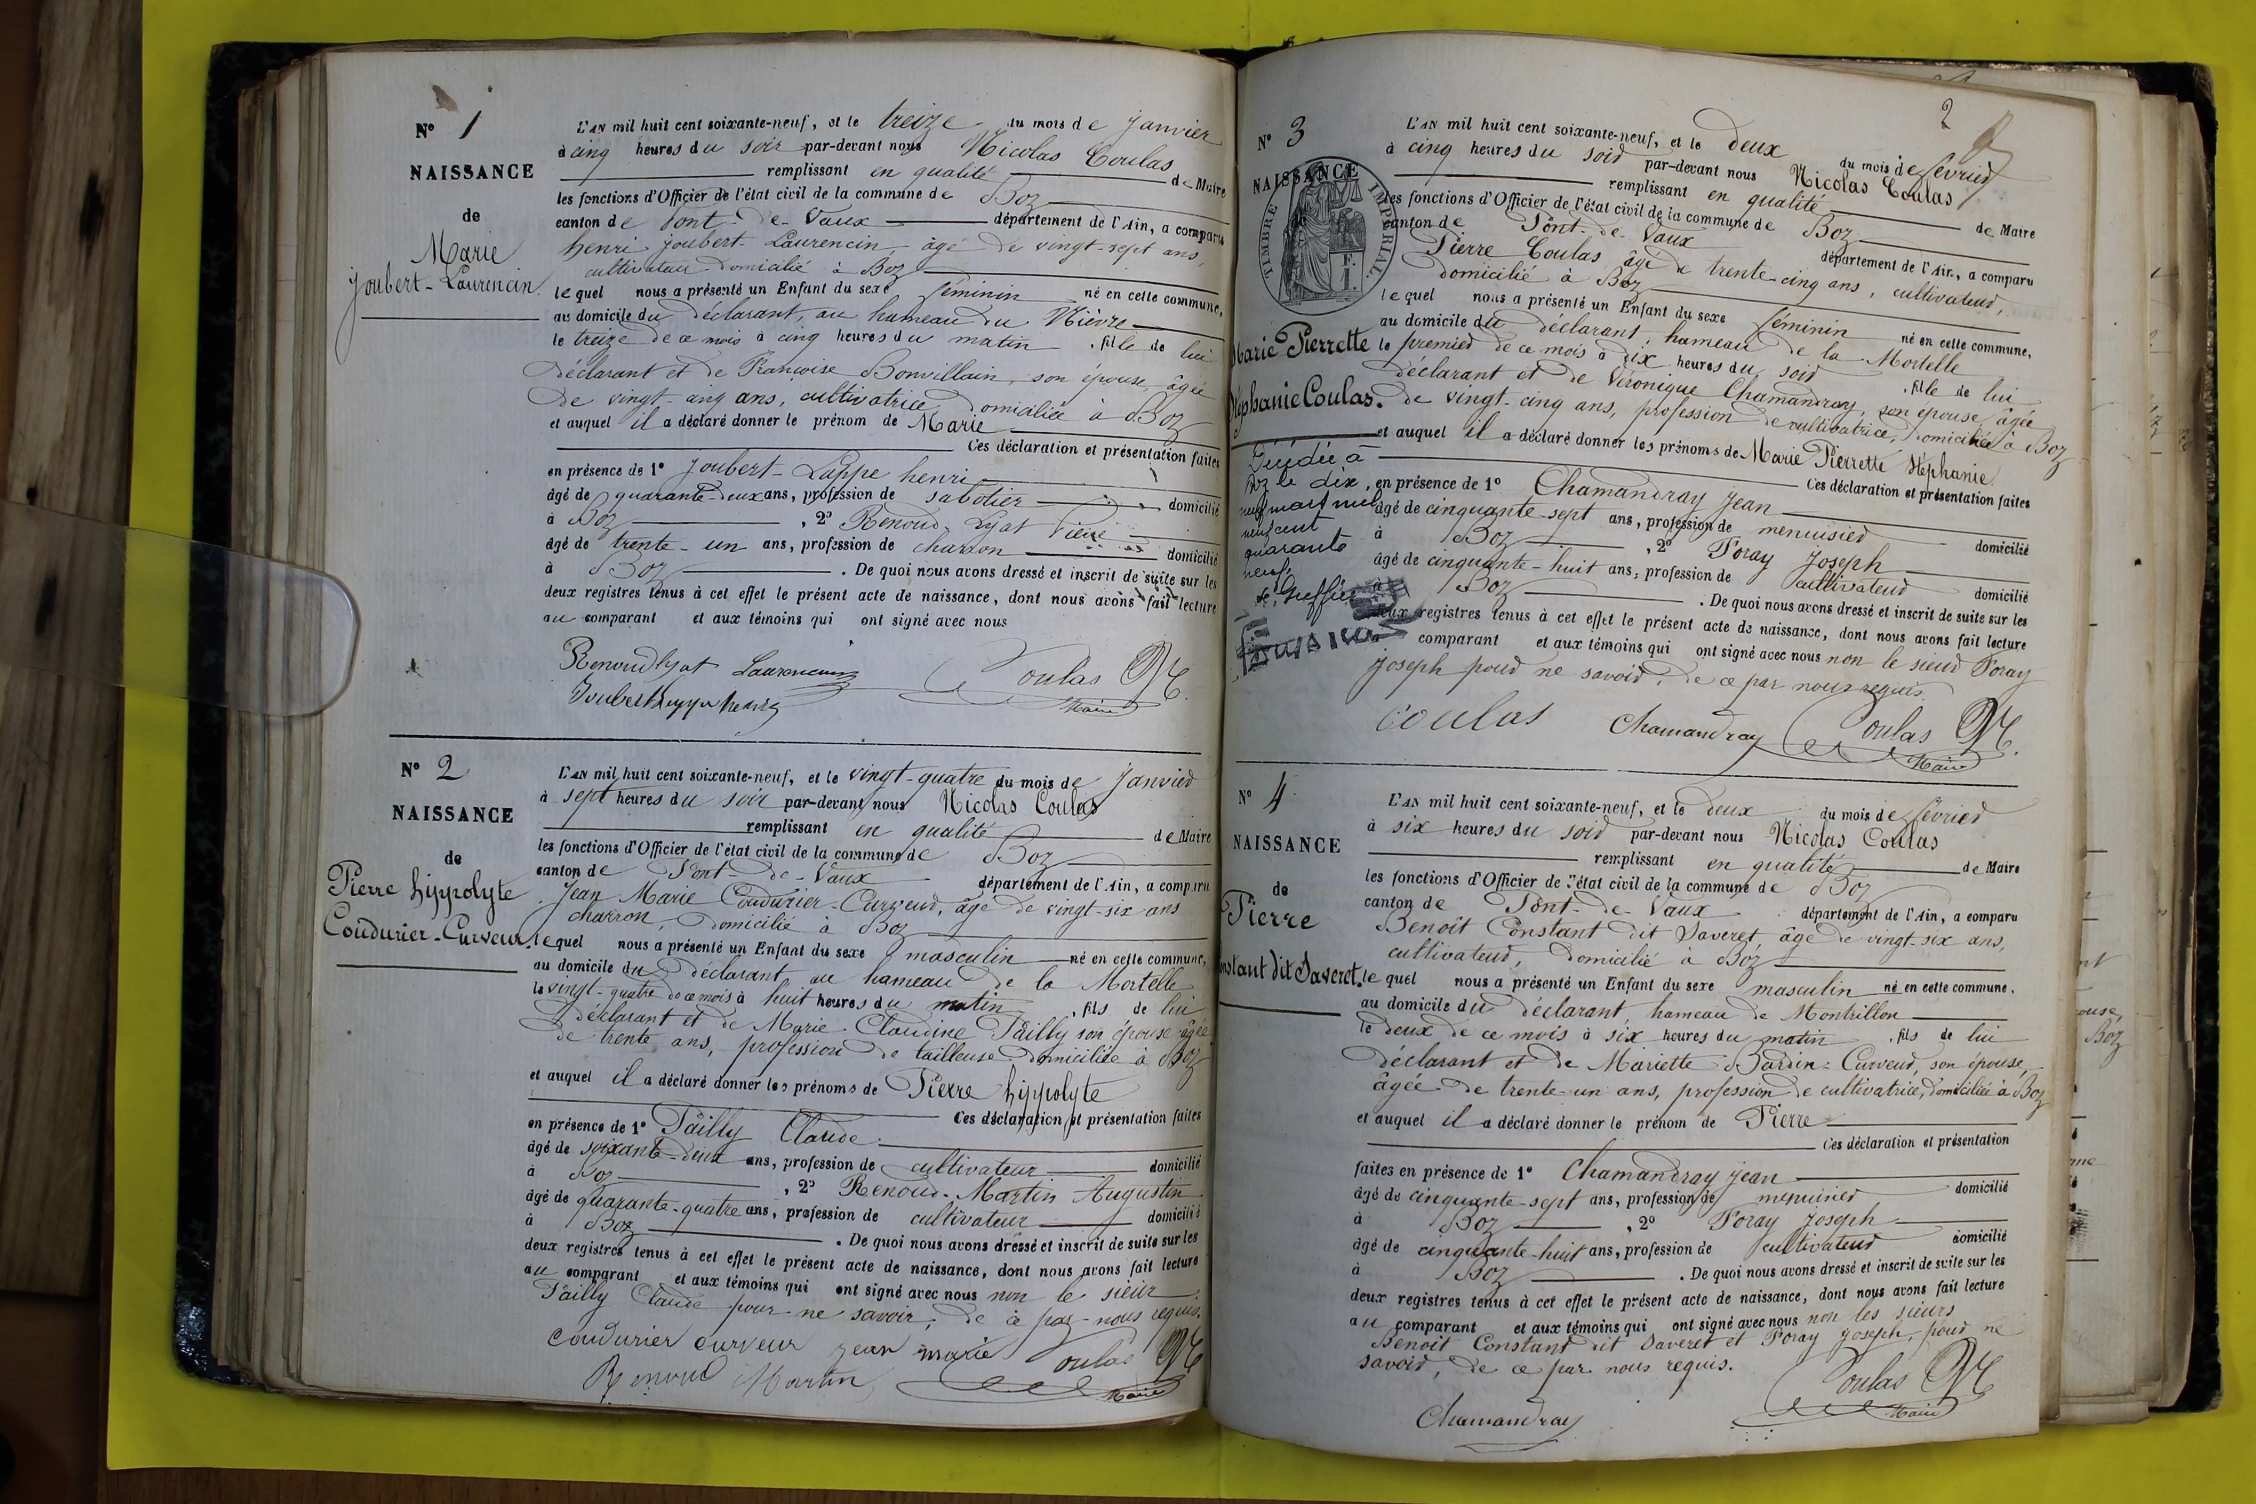 N° 1
NAISSANCE
de
Marie
Joubert-Laurencin.
L'AN mil huit cent soixante-neuf, et le treize du mois de janvier
à cinq heures du soir par-devant nous Nicolas Coulas
remplissant en qualité de Maire
les fonctions d'Officier de l'état civil de la commune de Boz
canton de Pont-de-Vaux département de l'Ain, a comparu
henri Joubert-Laurencin, âgé de vingt-sept ans,
cultivateur domicilié à Boz
lequel nous a présenté un Enfant du sexe féminin né en cette commune,
au domicile du déclarant, au hameau du Nièvre
le treize de ce mois à cinq heures du matin, fille de lui
déclarant et de Françoise Bonvillain, son épouse, âgée
de vingt-cinq ans, cultivatrice domiciliée à Boz
et auquel il a déclaré donner le prénom de Marie
Ces déclaration et présentation faites
en présence de 1° Joubert-Lappe henri
âgé de quarante-deux ans, profession de sabotier domicilié
à Boz, 2° Renoud-Lyat Pierre
âgé de trente-un ans, profession de charron domicilié
à Boz. De quoi nous avons dressé et inscrit de suite sur les
deux registres tenus à cet effet le présent acte de naissance, dont nous avons fait lecture
au comparant et aux témoins qui ont signé avec nous
Renoud lyat Laurencin Coulas N
Joubert lappe henri Maire
N° 2
NAISSANCE
de
Pierre hippolyte
Coudurier-Curveur.
L'AN mil huit cent soixante-neuf, et le vingt-quatre du mois de janvier
à sept heures du soir par-devant nous Nicolas Coulas
remplissant en qualité de Maire
les fonctions d'Officier de l'état civil de la commune de Boz
canton de Pont-de-Vaux département de l'Ain, a comparu
Jean Marie Coudurier-Curveur, âgé de vingt-six ans
charron, domicilié à Boz
lequel nous a présenté un Enfant du sexe masculin né en cette commune,
au domicile du déclarant au hameau de la Mortelle
le vingt-quatre de ce mois à huit heures du matin, fils de lui
déclarant et de Marie Claudine Pailly son épouse âgée
de trente ans, profession de tailleuse domiciliée à Boz
et auquel il a déclaré donner les prénoms de Pierre hippolyte
Ces déclaration et présentation faites
en présence de 1° Pailly Claude
âgé de soixante-deux ans, profession de cultivateur domicilié
à Boz, 2° Renoud-Martin Augustin
âgé de quarante-quatre ans, profession de cultivateur domicilié
à Boz. De quoi nous avons dressé et inscrit de suite sur les
deux registres tenus à cet effet le présent acte de naissance, dont nous avons fait lecture
au comparant et aux témoins qui ont signé avec nous non le sieur
Pailly Claude pour ne savoir, de ce par nous requis.
coudurier curveur jean marie Coulas N
Renoud Martin Maire
2
N° 3
NAISSANCE
TIMBRE IMPERIAL
Marie Pierrette
Stéphanie Coulas.
Décédée à
Boz le dix
neuf mars mil
neuf cent
quarante
neuf.
Le Greffier
L'AN mil huit cent soixante-neuf, et le deux du mois de février
à cinq heures du soir par-devant nous Nicolas Coulas
remplissant en qualité de Maire
les fonctions d'Officier de l'état civil de la commune de Boz
canton de Pont-de-Vaux département de l'Ain, a comparu
Pierre Coulas âgé de trente-cinq ans, cultivateur,
domicilié à Boz
lequel nous a présenté un Enfant du sexe féminin né en cette commune,
au domicile du déclarant, hameau de la Mortelle
le premier de ce mois à dix heures du soir, fille de lui
déclarant et de Véronique Chamandray, son épouse âgée
de vingt-cinq ans, profession de cultivatrice, domiciliée à Boz
et auquel il a déclaré donner les prénoms de Marie Pierrette Stéphanie
Ces déclaration et présentation faites
en présence de 1° Chamandray Jean
âgé de cinquante-sept ans, profession de menuisier domicilié
à Boz, 2° Foray Joseph
âgé de cinquante-huit ans, profession de cultivateur domicilié
à Boz. De quoi nous avons dressé et inscrit de suite sur les
deux registres tenus à cet effet le présent acte de naissance, dont nous avons fait lecture
comparant et aux témoins qui ont signé avec nous non le sieur Foray
Joseph pour ne savoir, de ce par nous requis.
coulas Chamandray Coulas N
Maire
N° 4
NAISSANCE
de
Pierre
Constant dit Saveret.
L'AN mil huit cent soixante-neuf, et le deux du mois de février
à six heures du soir par-devant nous Nicolas Coulas
remplissant en qualité de Maire
les fonctions d'Officier de l'état civil de la commune de Boz
canton de Pont-de-Vaux département de l'Ain, a comparu
Benoît Constant dit Saveret, âgé de vingt-six ans,
cultivateur, domicilié à Boz
lequel nous a présenté un Enfant du sexe masculin né en cette commune,
au domicile du déclarant, hameau de Montrillon
le deux de ce mois à six heures du matin, fils de lui
déclarant et de Mariette Bardin-Curveur, son épouse,
âgée de trente-un ans, profession de cultivatrice, domiciliée à Boz
et auquel il a déclaré donner le prénom de Pierre
Ces déclaration et présentation
faites en présence de 1° Chamandray Jean
âgé de cinquante-sept ans, profession de menuisier domicilié
à Boz, 2° Foray Joseph
âgé de cinquante-huit ans, profession de cultivateur domicilié
à Boz. De quoi nous avons dressé et inscrit de suite sur les
deux registres tenus à cet effet le présent acte de naissance, dont nous avons fait lecture
au comparant et aux témoins qui ont signé avec nous non les sieurs
Benoît Constant dit Saveret et Foray Joseph, pour ne
savoir, de ce par nous requis.
Coulas N
Chamandray Maire